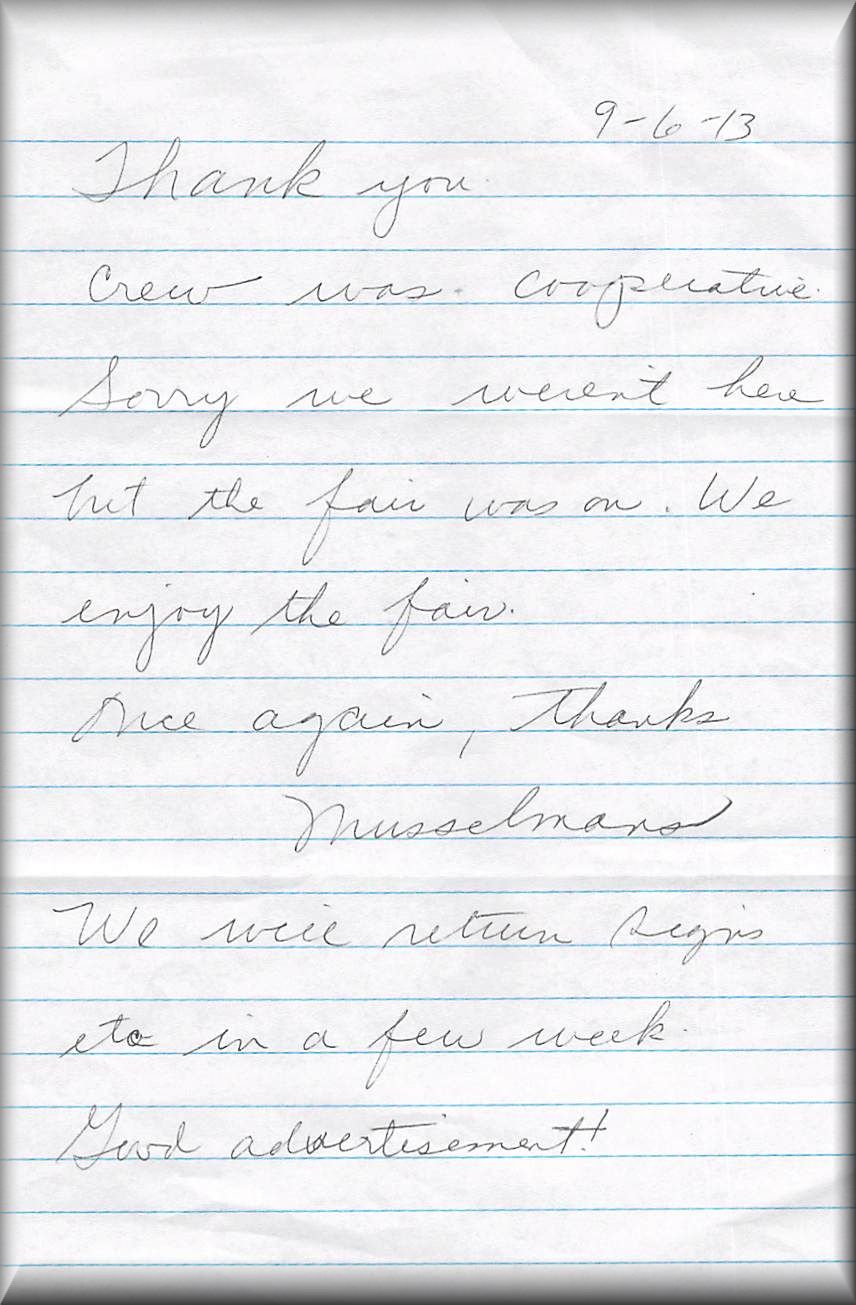 9-6-13
Thank you.
Crew was cooperative.
Sorry we weren't here
but the fair was on. We
enjoy the fair.
Once again, thanks
Musselmans
We will return signs
etc in a few week.
Good advertisement!